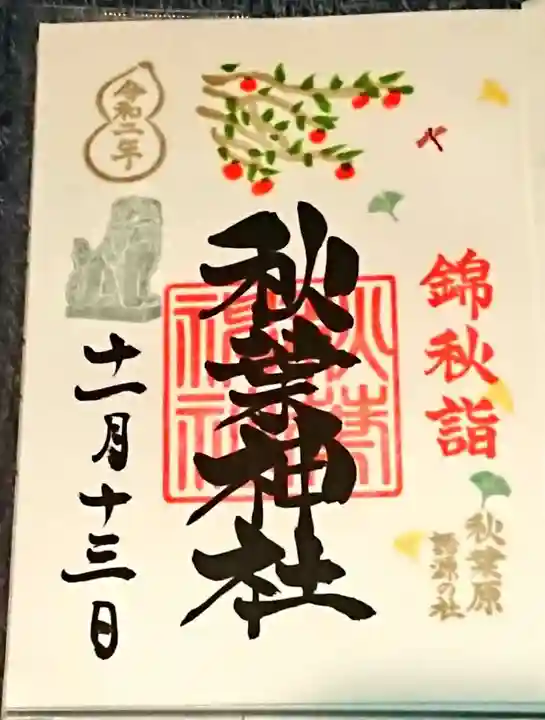 錦秋詣
秋葉原
語源の社
秋葉神社
秋葉
神社
令和二年
十一月十三日